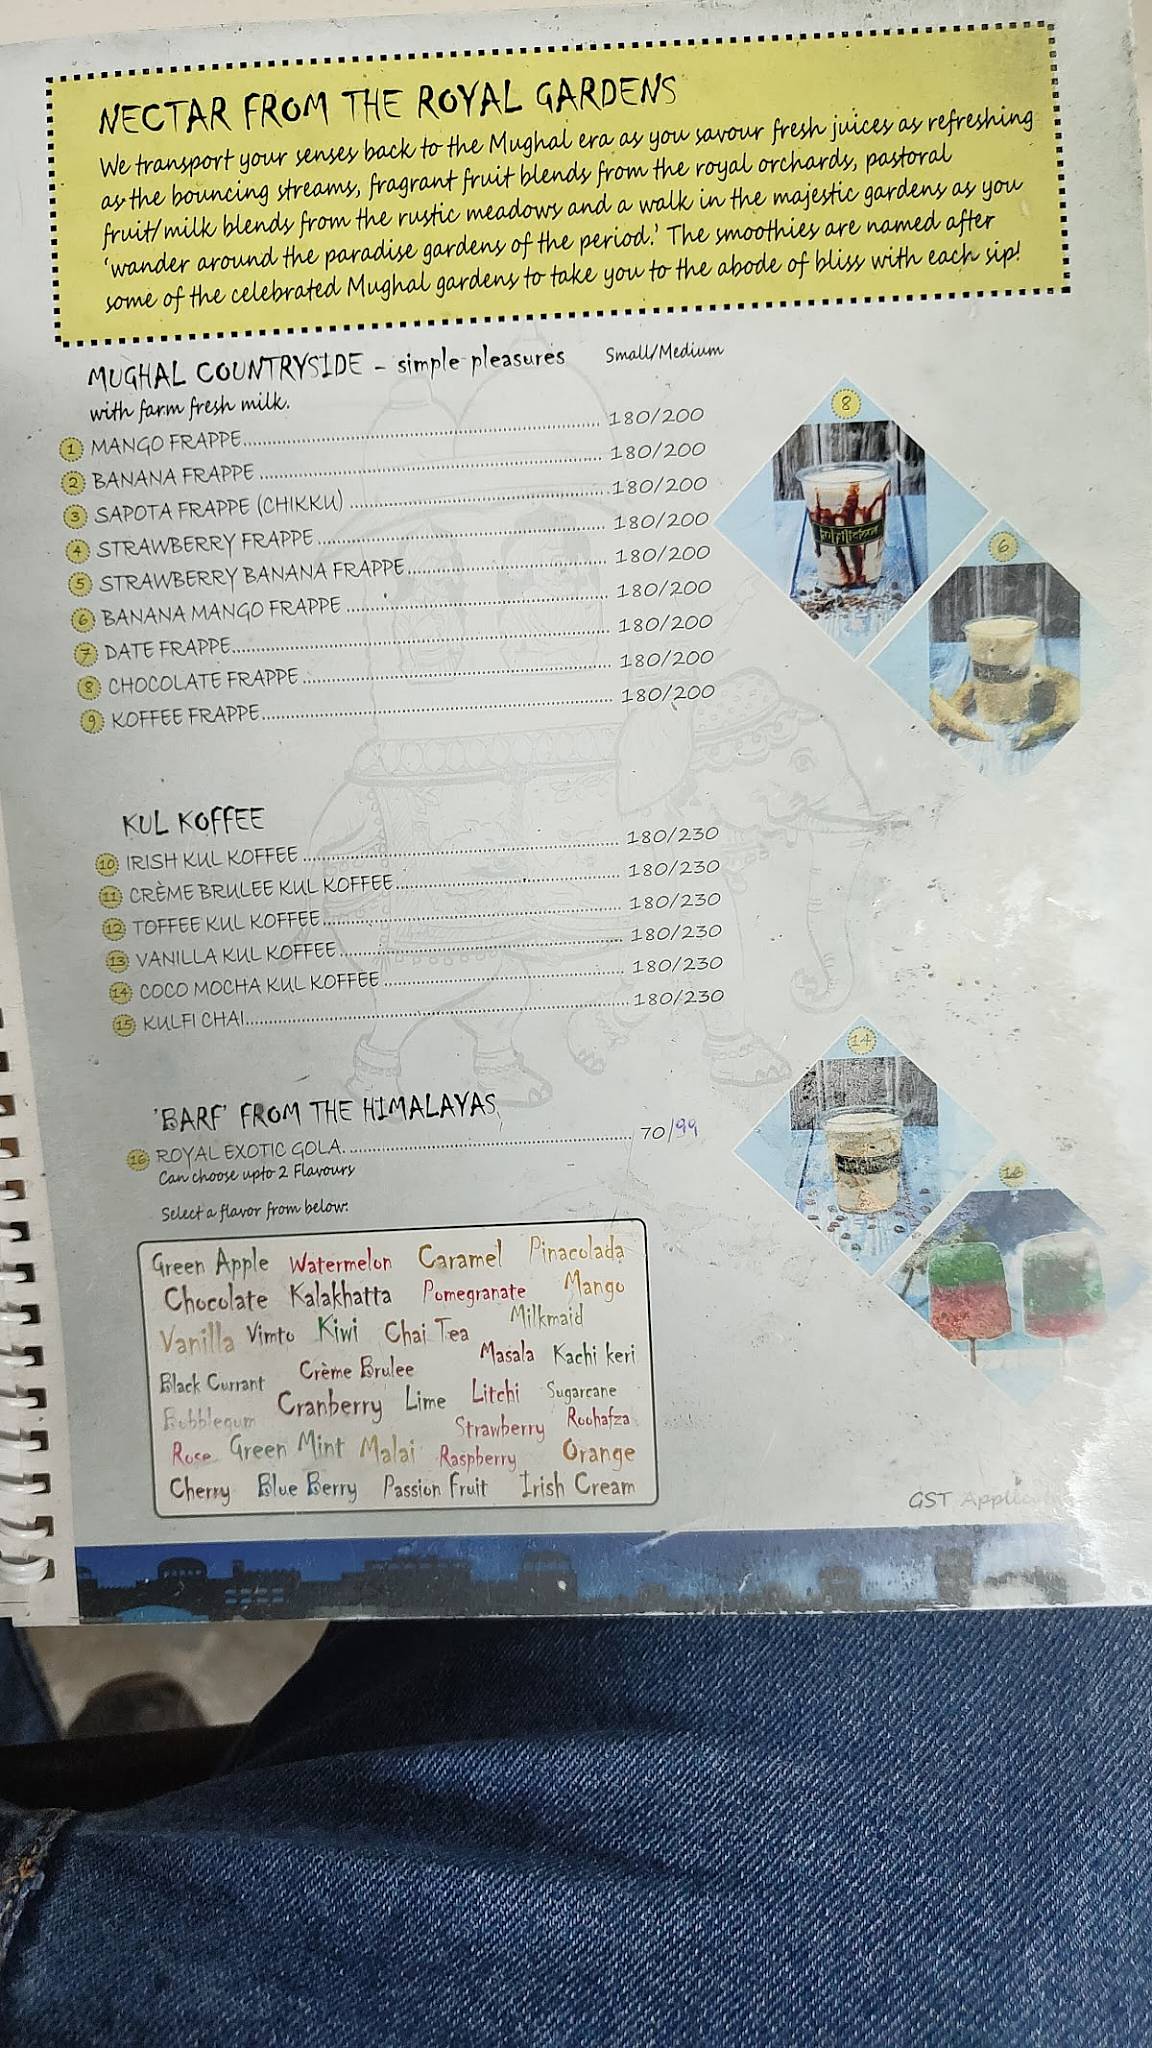 NECTAR FROM THE ROYAL GARDENS
We transport your senses back to the Mughal era as you savour fresh juices as refreshing
as the bouncing streams, fragrant fruit blends from the royal orchards, pastoral
fruit/milk blends from the rustic meadows and a walk in the majestic gardens as you
'wander around the paradise gardens of the period.' The smoothies are named after
some of the celebrated Mughal gardens to take you to the abode of bliss with each sip!
MUGHAL COUNTRYSIDE - simple pleasures Small/Medium
with farm fresh milk.
1 MANGO FRAPPE 180/200
2 BANANA FRAPPE 180/200
3 SAPOTA FRAPPE (CHIKKU) 180/200
4 STRAWBERRY FRAPPE 180/200
5 STRAWBERRY BANANA FRAPPE 180/200
6 BANANA MANGO FRAPPE 180/200
7 DATE FRAPPE 180/200
8 CHOCOLATE FRAPPE 180/200
9 KOFFEE FRAPPE 180/200
8
6
KUL KOFFEE
10 IRISH KUL KOFFEE 180/230
11 CRÈME BRULEE KUL KOFFEE 180/230
12 TOFFEE KUL KOFFEE 180/230
13 VANILLA KUL KOFFEE 180/230
14 COCO MOCHA KUL KOFFEE 180/230
15 KULFI CHAI 180/230
14
16
'BARF' FROM THE HIMALAYAS
16 ROYAL EXOTIC GOLA 70/99
Can choose upto 2 Flavours
Select a flavor from below:
Green Apple Watermelon Caramel Pinacolada
Chocolate Kalakhatta Pomegranate Mango
Vanilla Vimto Kiwi Chai Tea Milkmaid
Masala Kachi keri
Black Currant Crème Brulee
Cranberry Lime Litchi Sugarcane
Bubblegum Strawberry Roohafza
Rose Green Mint Malai Raspberry Orange
Cherry Blue Berry Passion Fruit Irish Cream
GST